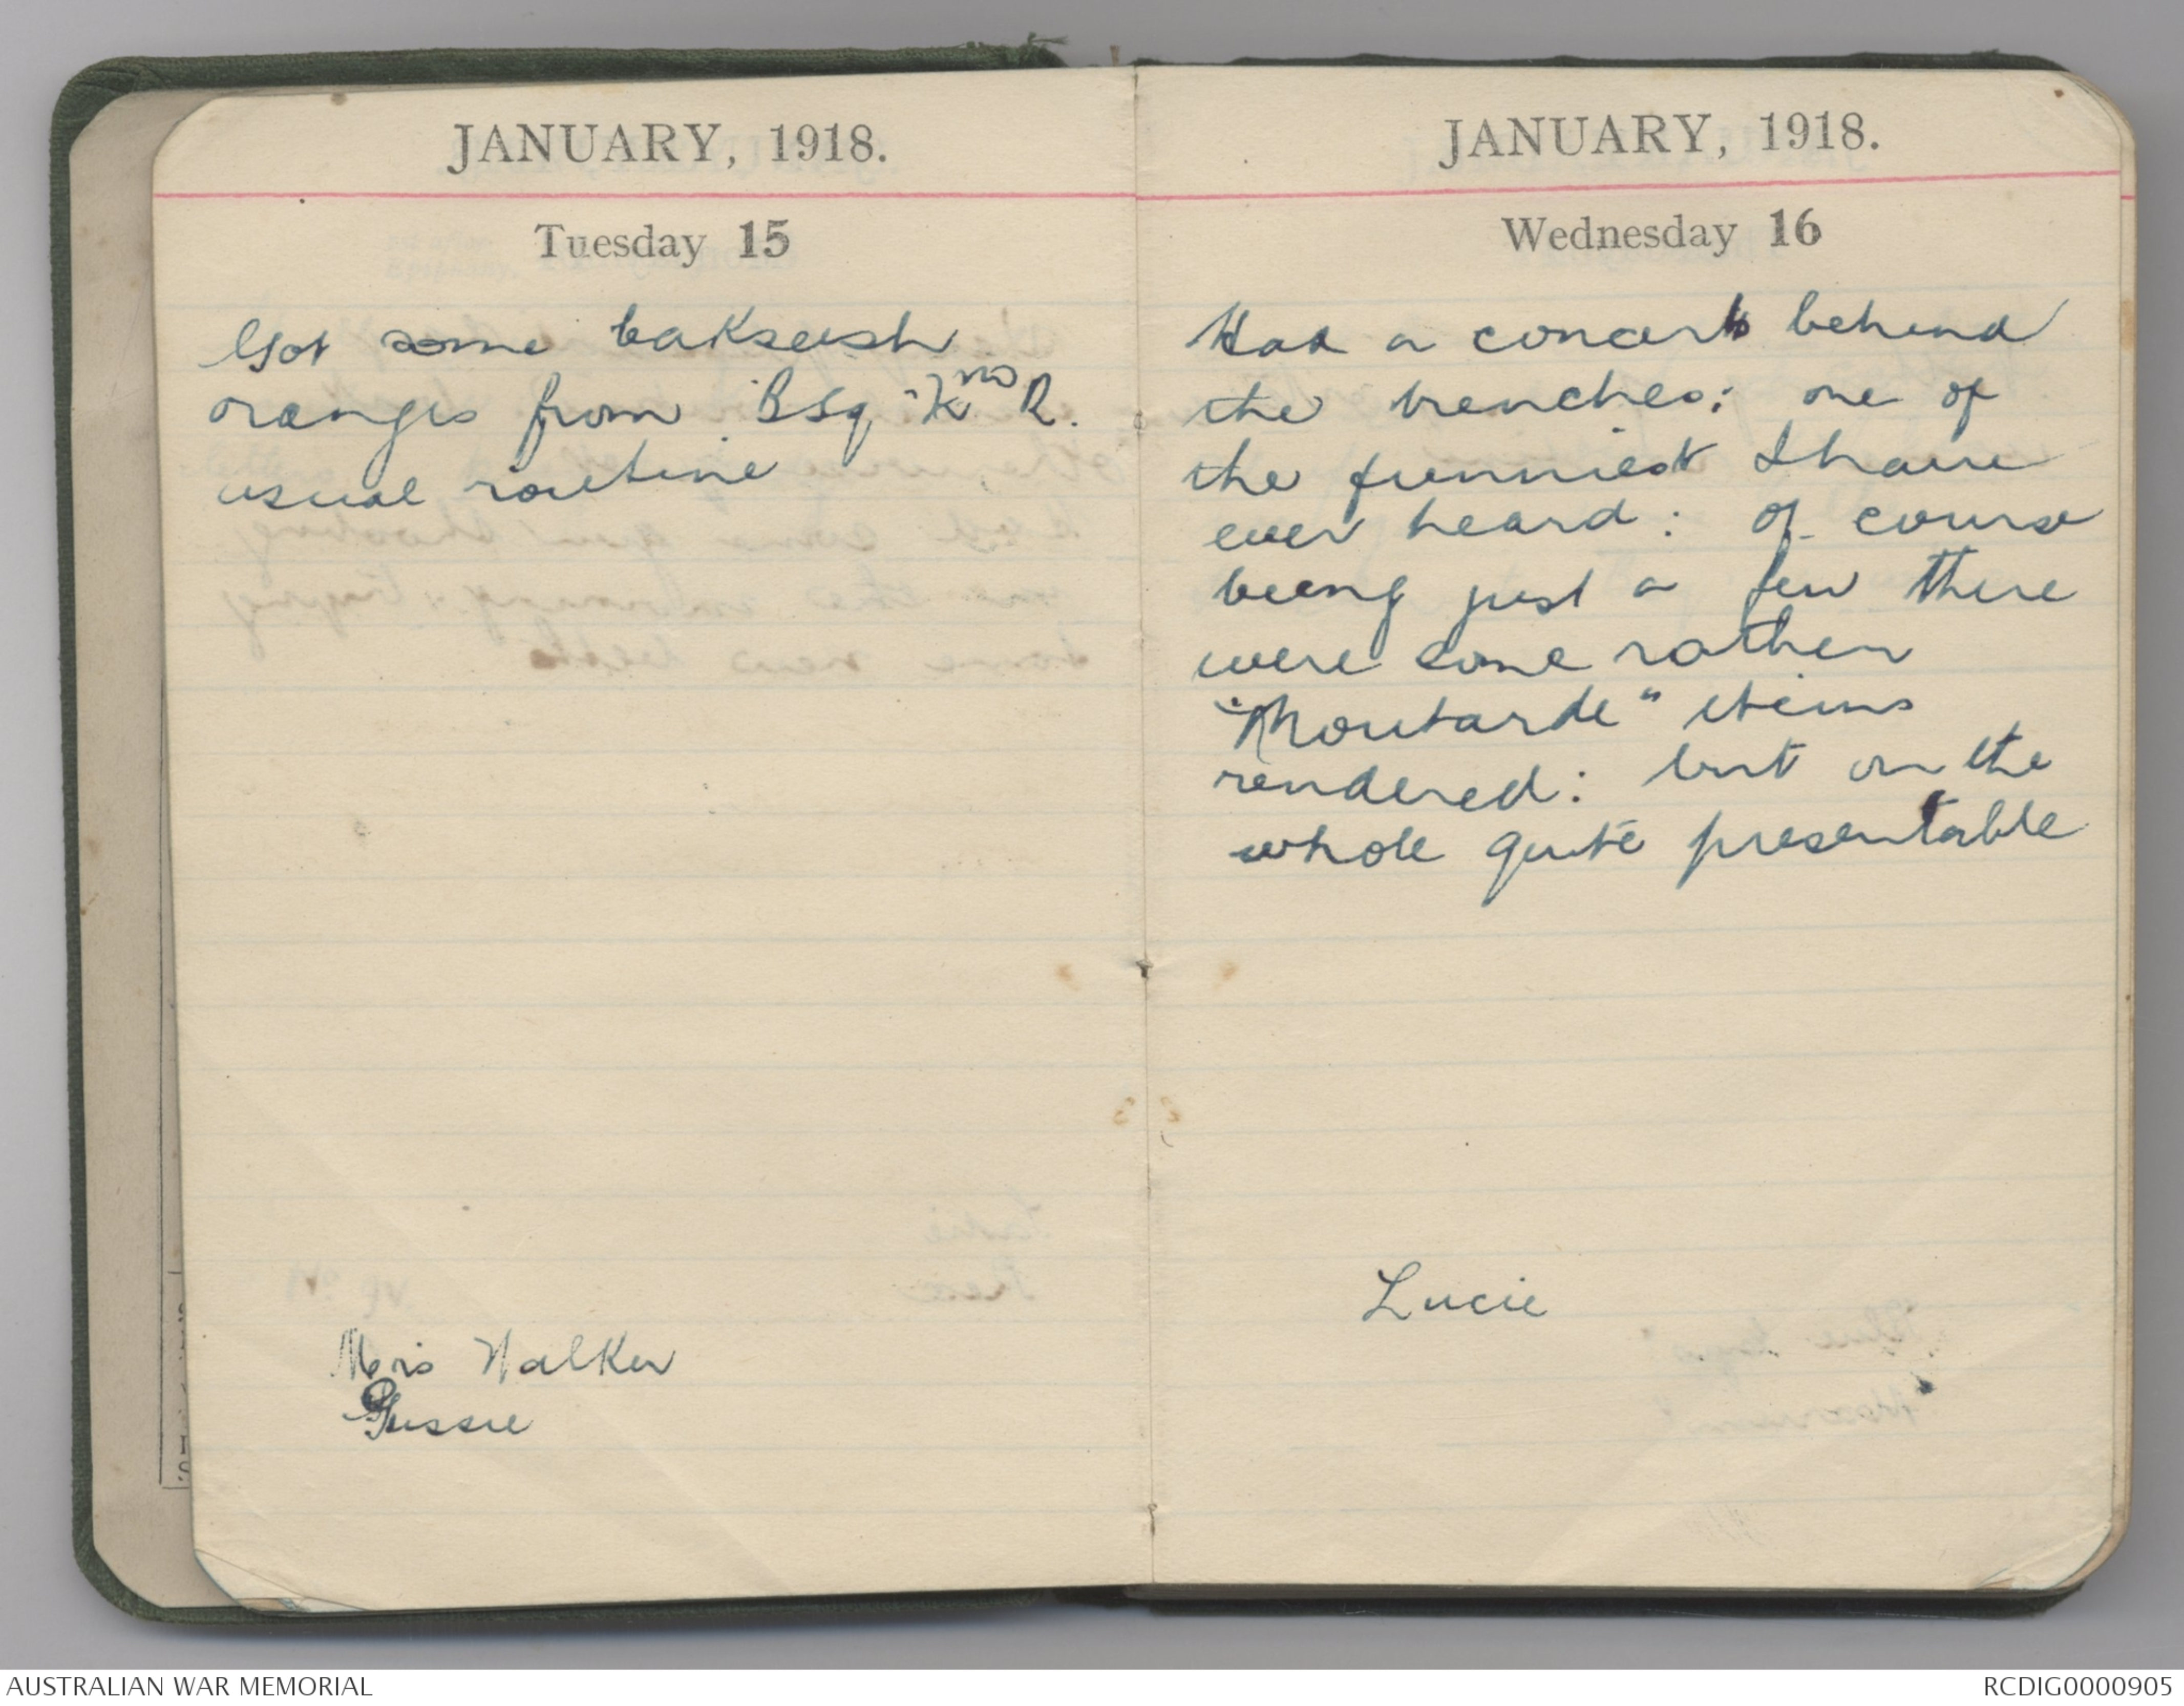 JANUARY, 1918.
Tuesday 15
Got some bakseesh
oranges from BSq R.
usual routine
Mrs Walker
Gussie
JANUARY, 1918.
Wednesday 16
Had a concert behind
the trenches: one of
the funniest I have
ever heard: of course
being just a few there
were some rather
"Moutarde" items
rendered: but on the
whole quite presentable
Lucie
AUSTRALIAN WAR MEMORIAL
RCDIG0000905